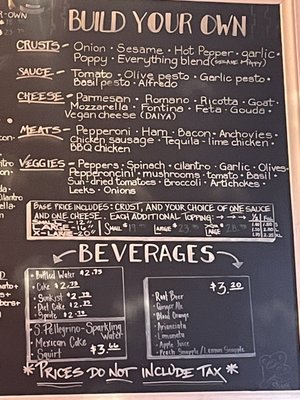 BUILD YOUR OWN
CRUSTS - Onion - Sesame - Hot Pepper - garlic -
Poppy - Everything blend (SESAME POPPY)
SAUCE - Tomato - Olive pesto - Garlic pesto -
Basil pesto - Alfredo
CHEESE - Parmesan - Romano - Ricotta - Goat -
Mozzarella - Fontina - Feta - Gouda -
Vegan cheese (DAIYA)
MEATS - Pepperoni - Ham - Bacon - Anchovies -
Chicken sausage - Tequila - lime chicken -
BBQ chicken
VEGGIES - Peppers - Spinach - cilantro - Garlic - Olives -
Pepperoncini - mushrooms - tomato - Basil
Sun-dried tomatoes - Broccoli - Artichokes -
Leeks - Onions
BASE PRICE INCLUDES: CRUST, AND YOUR CHOICE OF ONE SAUCE
AND ONE CHEESE. EACH ADDITIONAL TOPPING:
LARGE - 16"
X-LARGE - 20"
BEVERAGES
Bottled Water $2.75
Coke $2.75
Sunkist
Diet Coke
Sprite
S. Pellegrino - Sparkling
Water
Mexican Coke
Squirt $3.66
$3.20
Root Beer
Ginger Ale
Blood Orange
Aranciata
Limonata
Apple Juice
Peach Snapple / Lemon Snapple
*PRICES DO NOT INCLUDE TAX*